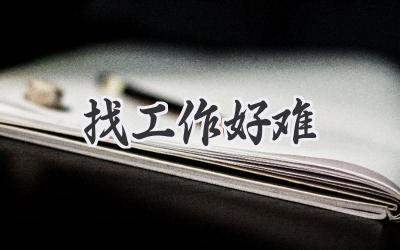 找工作好难